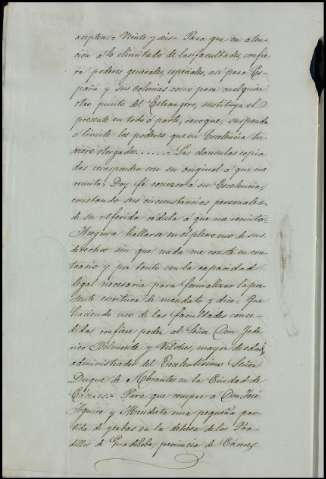 acepten = Veinte y seis = Para que en aten-
cion a lo ilimitado de las facultades, confie-
ra poderes generales, especiales, asi para Es-
paña y sus colonias como para cualquier
otro punto del Extrangero, sustituya el
presente en todo ó parte, revoque, suspenda
ó limite los poderes que su Excelencia tu-
viere otorgados. Las clausulas copia-
das corresponden con su original á que me
remito; Doy fé conozco a su Excelencia,
constando sus circunstancias personales
de su referida cédula á que me remito.
Asegura hallarse en el pleno uso de sus
derechos sin que nada me conste en con-
trario y por tanto con la capacidad
legal necesaria para formalizar la pre-
sente escritura de mandato y dice: Que
haciendo uso de las facultades conce-
didas confiere poder al Señor Don
y mayor de edad,
administrador del Excelentisimo Señor
Duque de Abrantes en la Ciudad de
Cáceres = Para que compre á Don José
Aguirre y una pequeña par-
tida de yerbas en la dehesa de los
de provincia de Cáceres